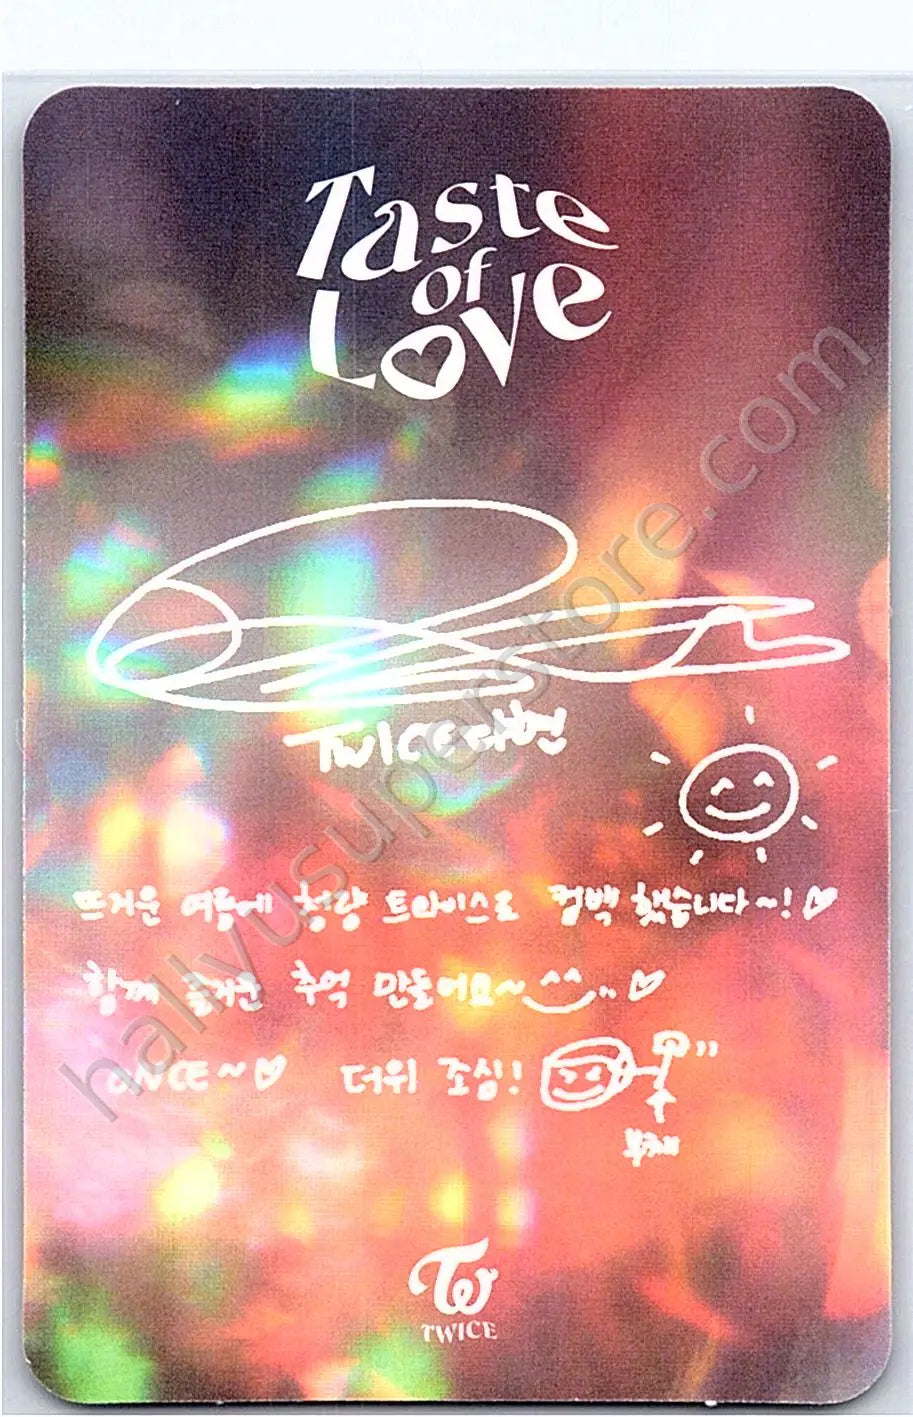 Taste
of
Love
TWICE 다현
뜨거운 여름에 청량 트와이스로 컴백 했습니다~!♡
함께 즐거운 추억 만들어요~^^♡
ONCE~♡ 더위 조심!
부채
TWICE
hallyusuperstore.com